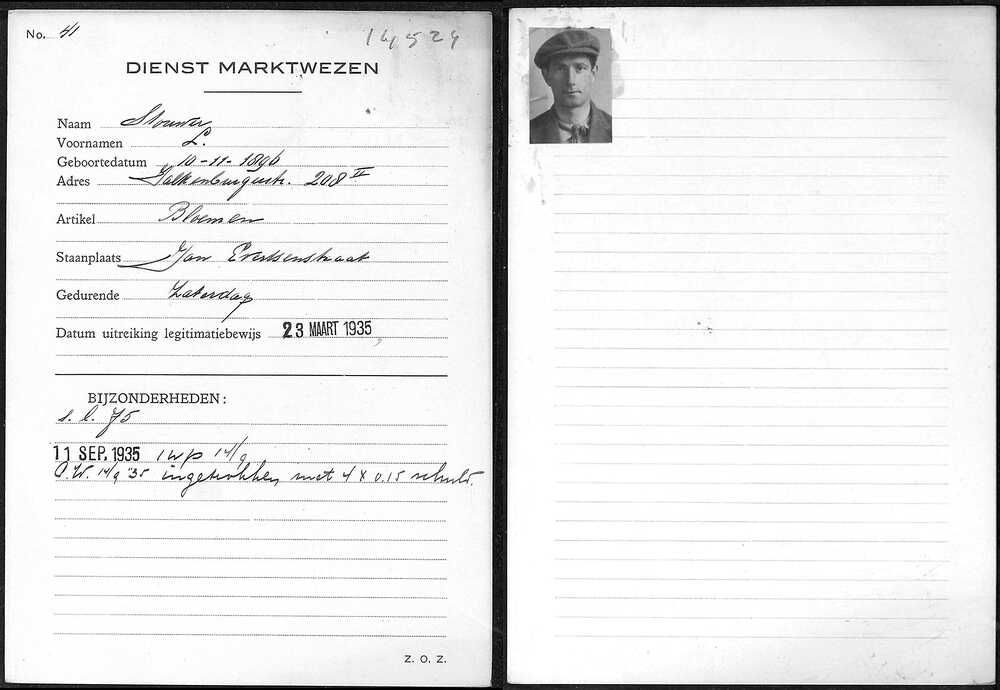 No. 41
14524
DIENST MARKTWEZEN
Naam Stouwer
Voornamen L.
Geboortedatum 10-11-1896
Adres Valkenburgerstr. 208 II
Artikel Bloemen
Staanplaats Jan Evertsenstraat
Gedurende Zaterdag
Datum uitreiking legitimatiebewijs 23 MAART 1935
BIJZONDERHEDEN:
s. l. 75
11 SEP. 1935 1wp 14/9
O.W. 14/9 '35 ingetrokken met 4 x 0.15 schuld.
Z. O. Z.